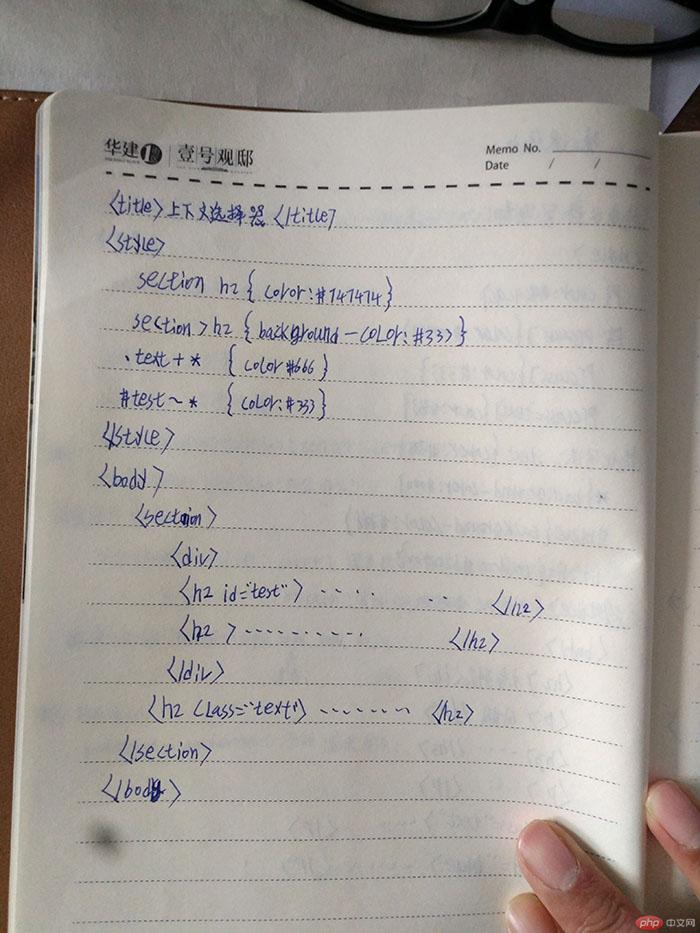 华建1 壹号观邸
Memo No.
Date / /
<title>上下文选择器</title>
<style>
section h2 { color:#747474}
section>h2 {background-color:#333}
.text + * { color #666}
#test ~ * { color:#333}
</style>
<body>
<section>
<div>
<h2 id="test">---- -- </h2>
<h2 >---------- </h2>
</div>
<h2 class="text">------- </h2>
</section>
</body>
php 中文网